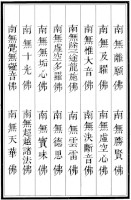 南無離驕佛 南無賢佛
南無及羅佛 南無虛空心佛
南無惟大音佛 南無決斷音佛
南無除三塗龍施佛 南無雲雷佛
南無虛空多羅佛 南無德思佛
南無無垢心佛 南無寶味佛
南無千光佛 南無超越諸法佛
南無覺無礙音佛 南無天華佛